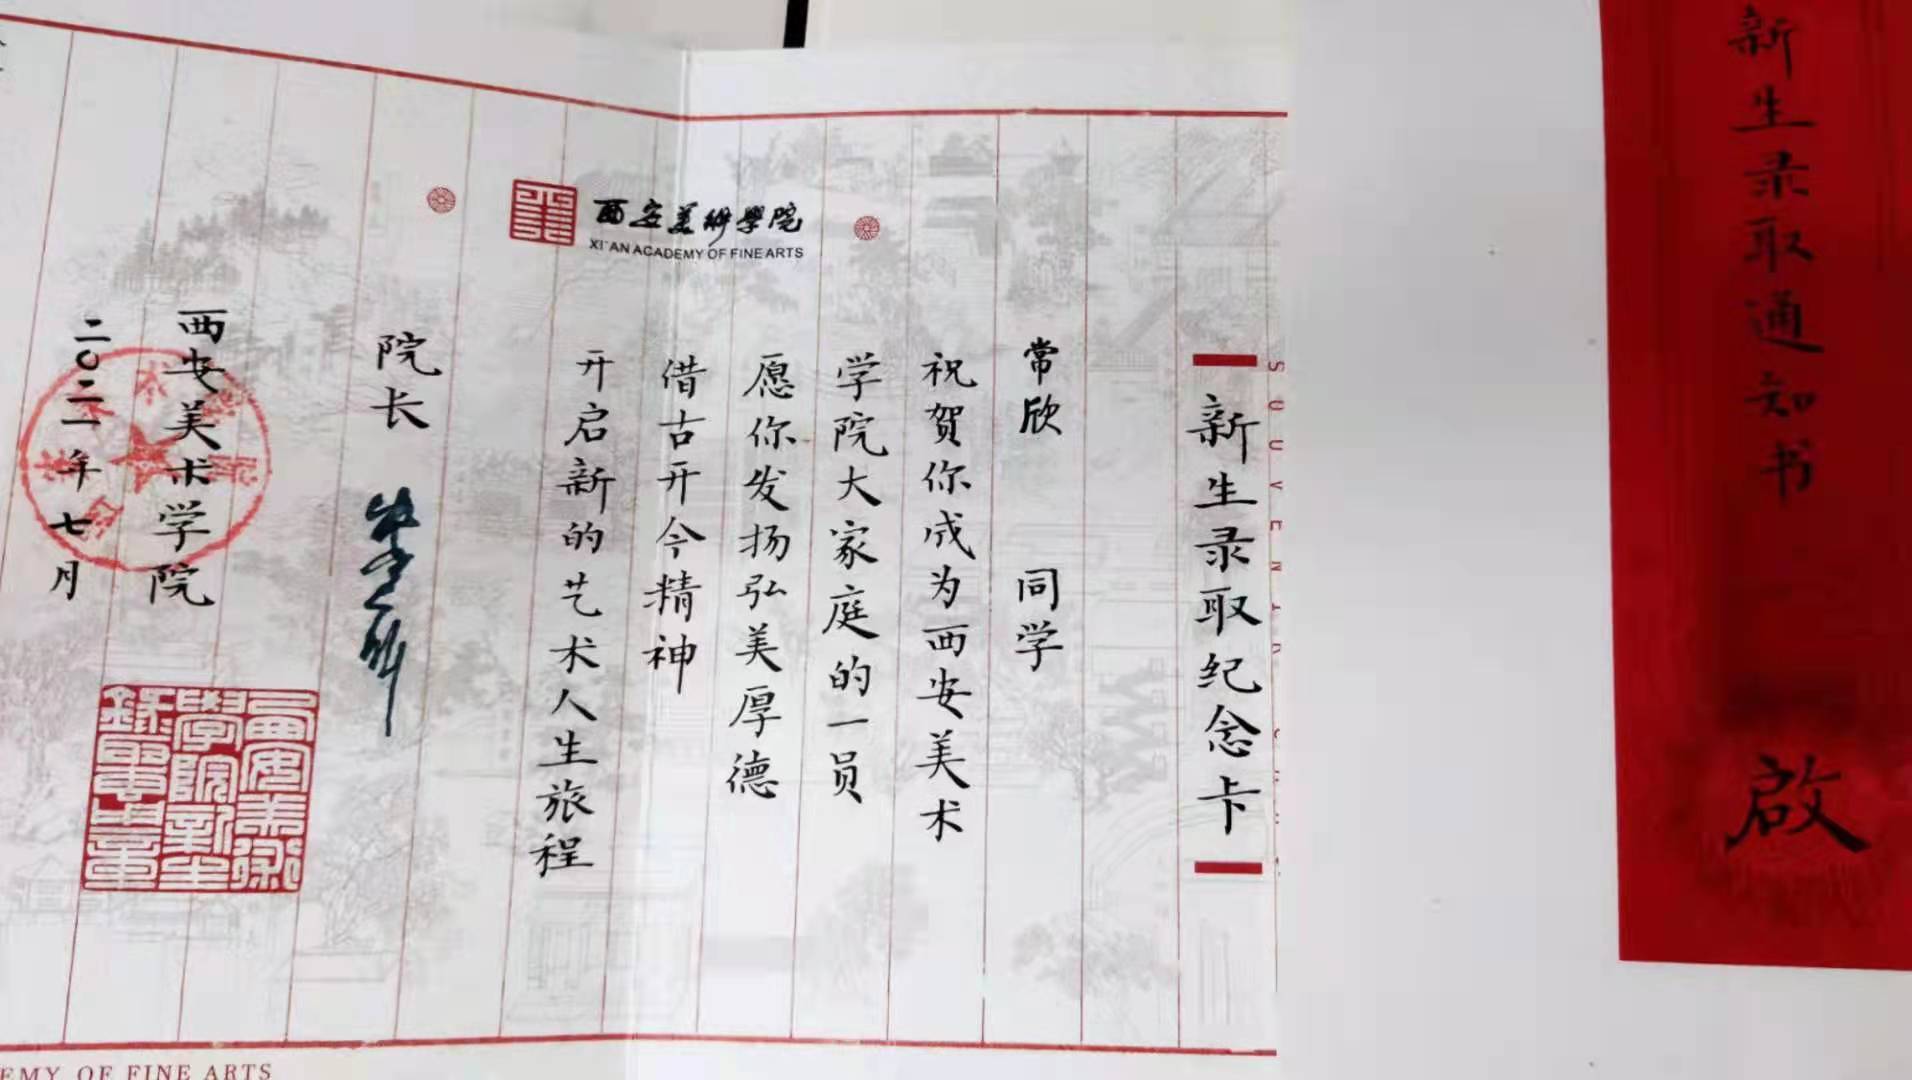 新生录取通知书
啟
新生录取纪念卡
西安美術學院
XI'AN ACADEMY OF FINE ARTS
常欣 同学
祝贺你成为西安美术
学院大家庭的一员
愿你发扬弘美厚德
借古开今精神
开启新的艺术人生旅程
院长
西安美术学院
二〇二一年七月
西安美術
學院新生
錄取之章
EMY OF FINE ARTS